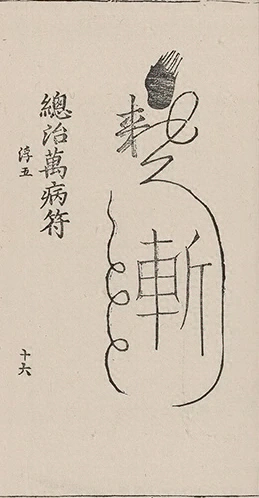 斬
總治萬病符
淳五
十六